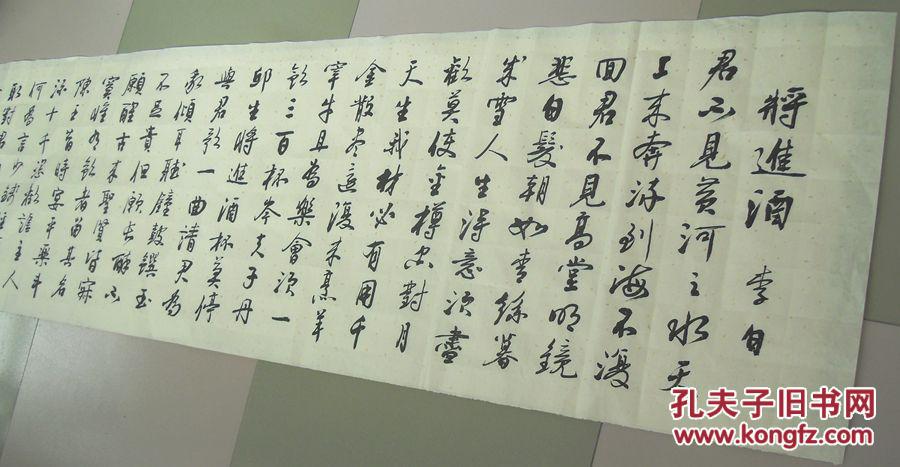 將進酒 李白
君不見黄河之水天
上来奔流到海不復
回君不見高堂明鏡
悲白髮朝如青絲暮
成雪人生得意須盡
歡莫使金樽空對月
天生我材必有用千
金散盡還復来烹羊
宰牛且為樂會須一
飲三百杯岑夫子丹
邱生將進酒杯莫停
與君歌一曲請君為
我傾耳聽鐘鼓饌玉
不足貴但願長醉不
願醒古来聖賢皆寂
寞惟有飲者留其名
陳王昔時宴平樂斗
酒十千恣歡謔主人
何為言少錢
取對君
孔夫子旧书网
www.kongfz.com